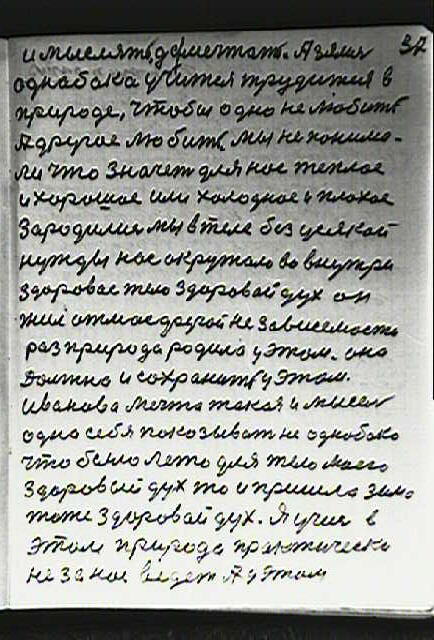 37
и мыслять, де мечтать. А взялися
однабока учится трудится в
природе, чтобы одно не любить
А другое любить, мы не понима-
ли что значет для нас теплое
и хорошое или холодное и плохое
Зародилися мы в теле без усякой
нужды нас окружало во внутри
здоровае тело здоровай дух он
жил атмосферой не зависемости
раз природа родила у этом. она
Должна и сохранить у этом.
Иванова мечта такая и мысел
одно себя показывать не однобако
что было лето для тело моего
Здоровый дух то и пришла зима
тоже здоровай дух. Я учися в
Этом природа практическо
не за нас ведет А у этом